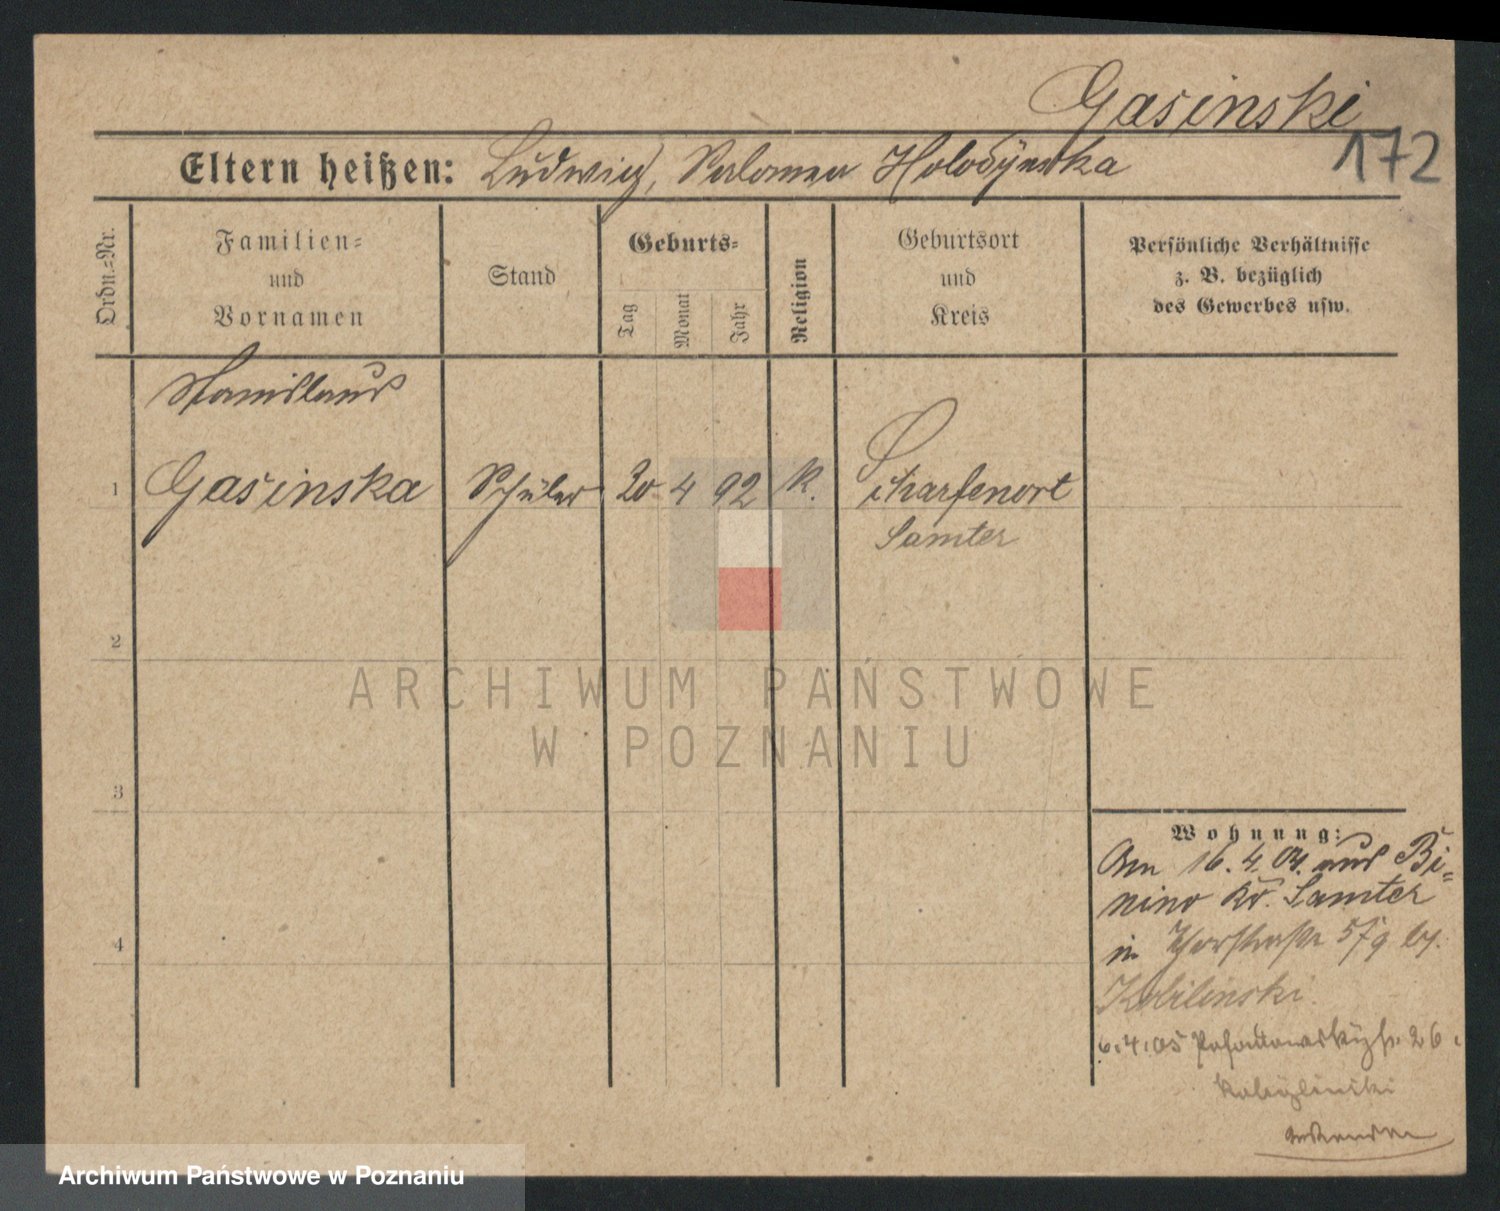 Gasinski
172
Eltern heißen: Ludwig, Salomea Holodynska
Ordn.-Nr.
Familien-
und
Vornamen
Stand
Geburts-
Tag
Monat
Jahr
Religion
Geburtsort
und
Kreis
Persönliche Verhältnisse
z. B. bezüglich
des Gewerbes usw.
Stanislaus
1 Gasinska Schüler 20 4 92 K. Scharfenort
Samter
2
3
4
Wohnung:
Am 16. 4. 04. aus Bi-
nino Kr. Samter
in Thorstraße bg.
Kobilinski.
6.4.05 26.
Kobylinski
ARCHIWUM PAŃSTWOWE
W POZNANIU
Archiwum Państwowe w Poznaniu